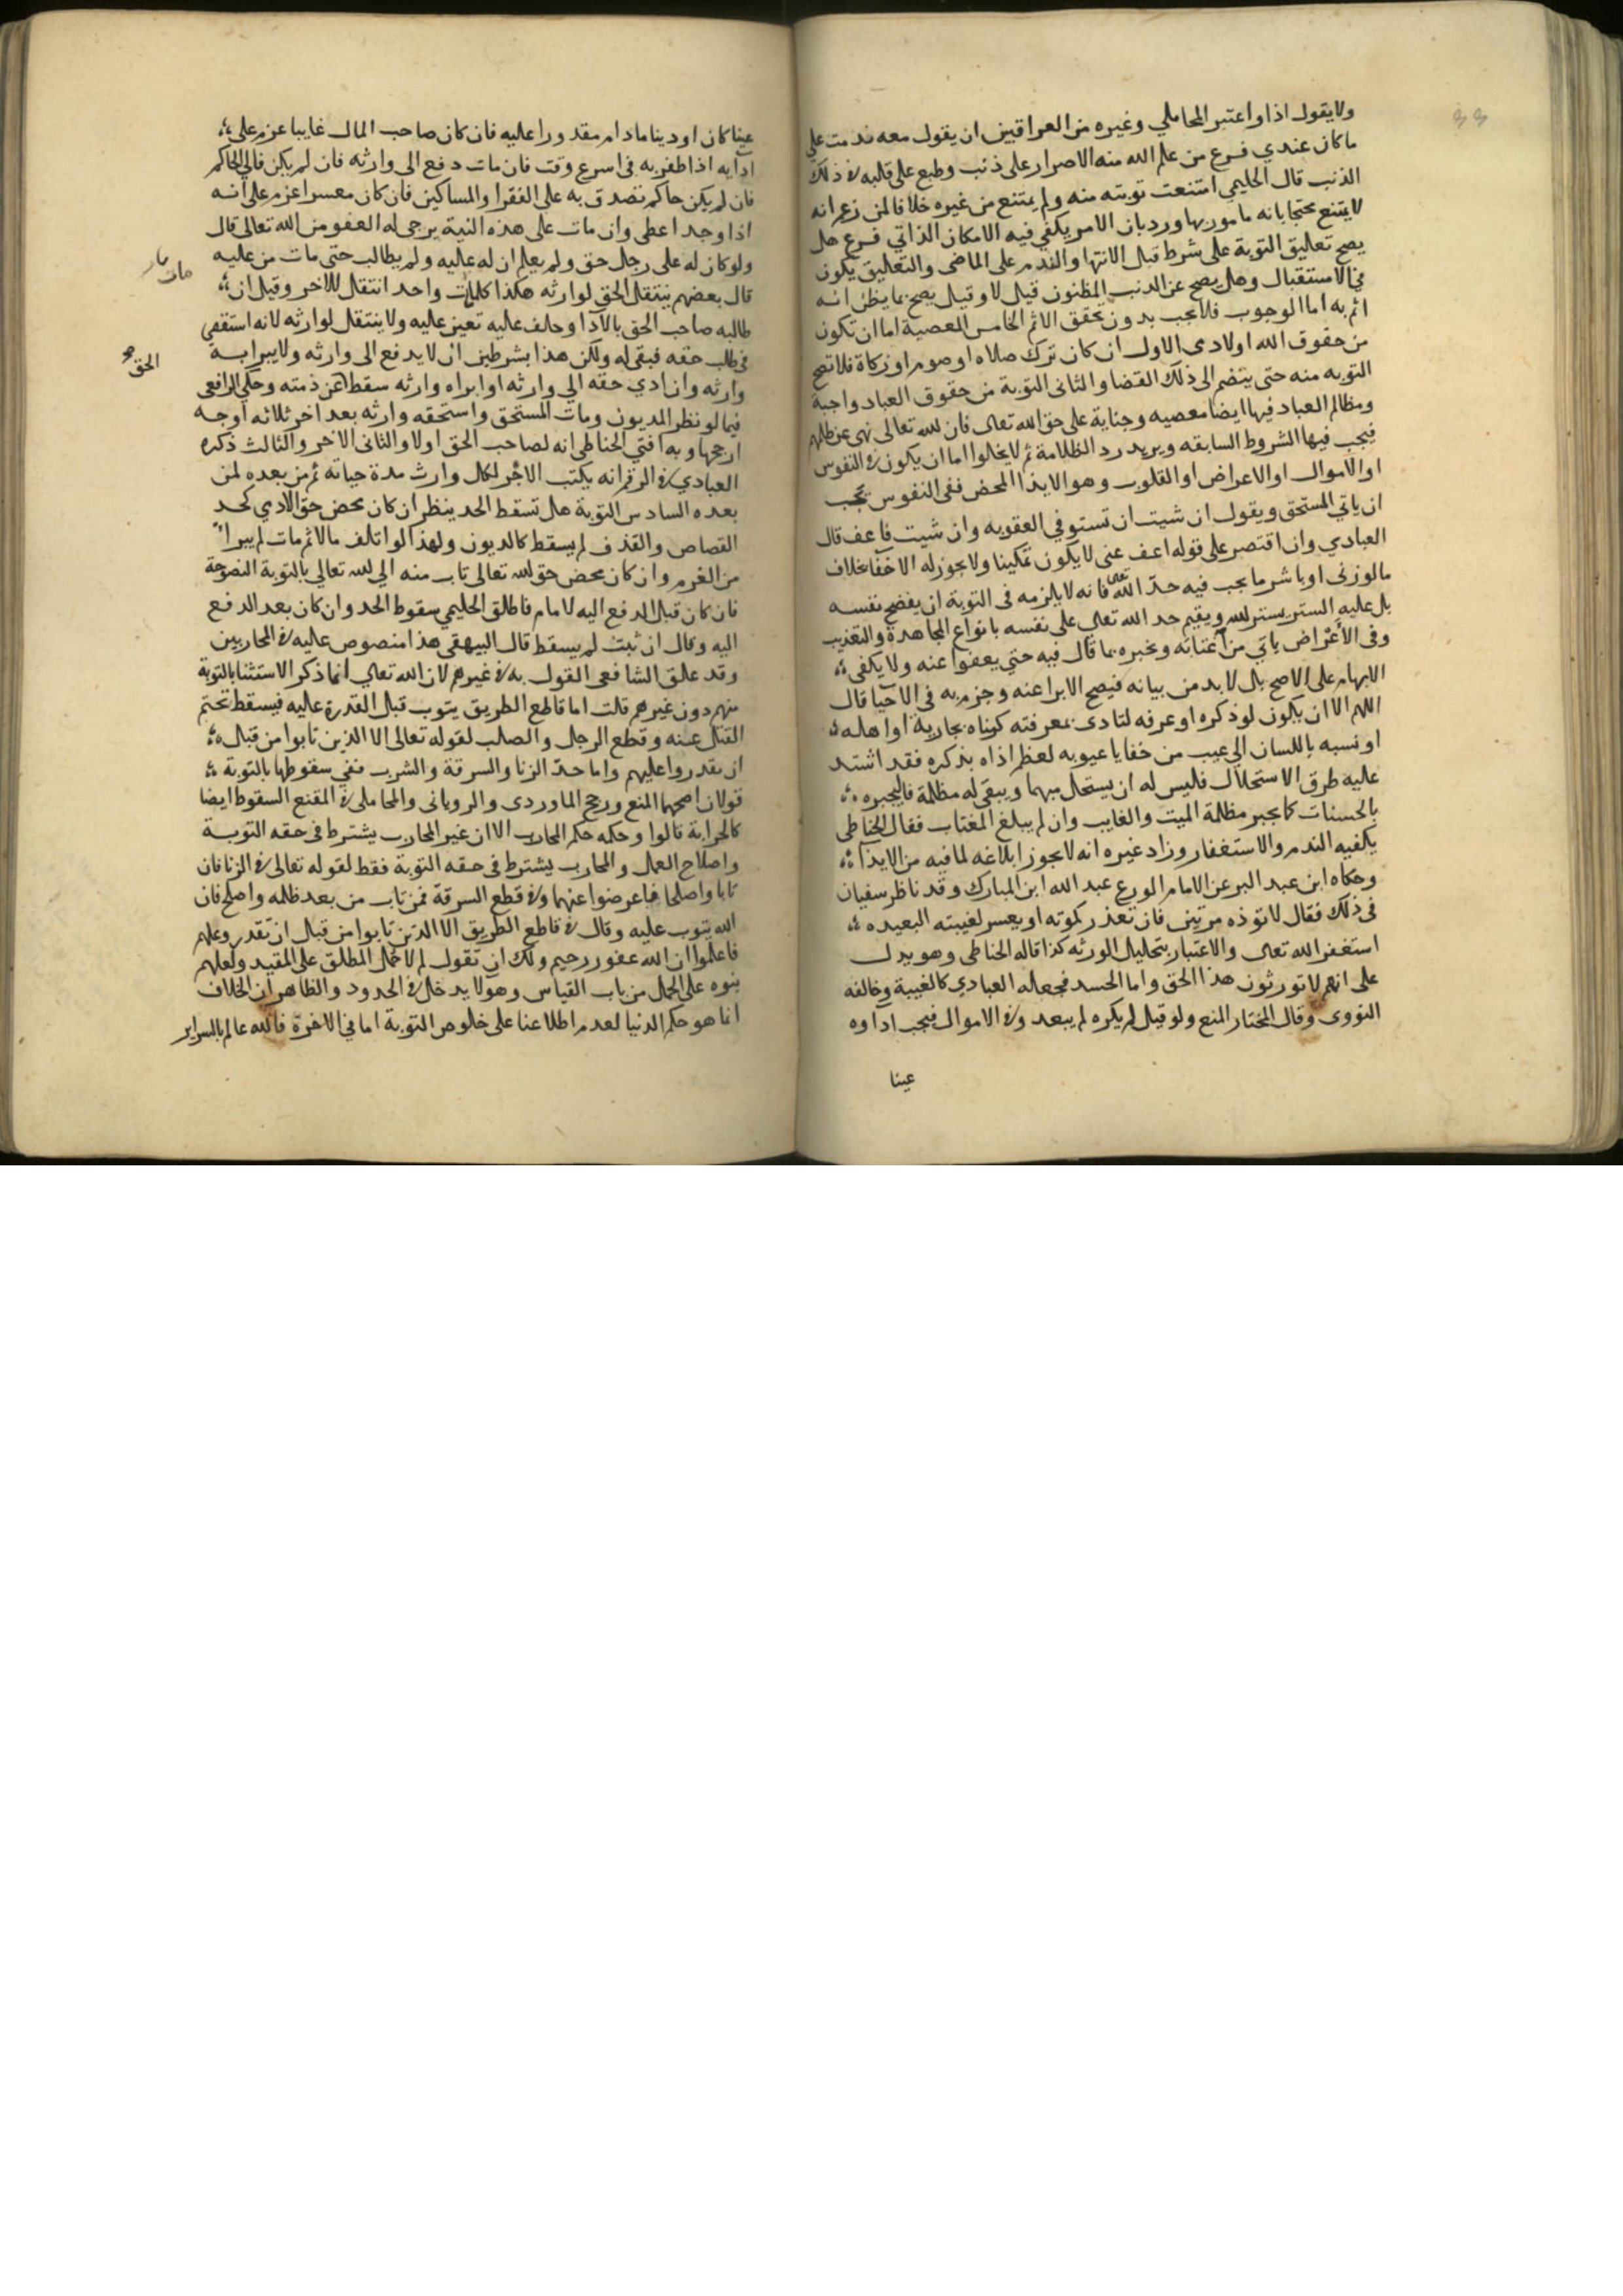 ولا يقول اذا واعتبر المحاملي وغيره من العراقيين ان يقول معه ندمت على
ما كان عندي فرع من علم الله منه الاصرار على ذنب وطبع على قلبه في ذلك
الذنب قال الحليمي امتنعت توبته منه ولم يمتنع من غيره خلافا لمن زعم انه
لا يتنع محتجا بانه مامور بها ورد بان الامر يكفي فيه الامكان الذاتي فرع هل
يصح تعليق التوبة على شرط قبل الانتها والندم على الماضى والتعليق يكون
في الاستقبال وهل يصح عن الدنب المظنون قيل لا وقيل يصح بما يظن انه
اثم به اما الوجوب فلا يجب بدون تحقق الاثم الخامس المعصية اما ان تكون
من حقوق الله او لادمى الاول ان كان ترك صلاه او صوم او زكاة فلا تصح
التوبه منه حتى ينضم الى ذلك القضا والثانى التوبة من حقوق العباد واجبة
ومظالم العباد فيها ايضا معصيه وجناية على حق الله تعالى فان لله تعالى نهى عن ظلمهم
فيجب فيها الشروط السابقه ويريد رد الظلامة ثم لا يخلوا اما ان يكون في النفوس
او الاموال او الاعراض او القلوب وهو الايذا المحض ففى النفوس يجب
ان ياتي المستحق ويقول ان شيت ان تستوفي العقوبه وان شيت فاعف قال
العبادي وان اقتصر على قوله اعف عنى لا يكون تمكينا ولا يجوز له الاخفا بخلاف
ما لو زنى او باشر ما يجب فيه حد الله تعالى فانه لا يلزمه فى التوبة ان يفضح نفسه
بل عليه الستر بستر لله ويقيم حد الله تعالى على نفسه بانواع المجاهدة والتعذيب
وفى الأعراض ياتي من اغتابه ويخبره بما قال فيه حتي يعفوا عنه ولا يكفى
الابهام على الاصح بل لا بد من بيانه فيصح الابرا عنه وجزم به فى الاحيا قال
اللهم الا ان يكون لو ذكره او عرفه لتادى بمعرفته كزناه بجارية او اهله
او نسبه باللسان الي عيب من خفايا عيوبه لعظم اذاه بذكره فقد اشتد
عليه طرق الاستحلال فليس له ان يستحل مبهما ويبقى له مظلمة فاليجبره
بالحسنات كما يجبر مظلمة الميت والغايب وان لم يبلغ المغتاب فقال الحناطي
يكفيه الندم والاستغفار وزاد غيره انه لا يجوز ابلاغه لما فيه من الايذا
وحكاه ابن عبد البر عن الامام الورع عبد الله ابن المبارك وقد ناظر سفيان
فى ذلك فقال لا توذه مرتين فان تعذر كموته او بعسر لغيبته البعيده
استغفر الله تعالى والاعتبار بتحليل الورثه كذا قاله الحناطى وهو يدل
على انهم لا يورثون هذا الحق واما الحسد فجعله العبادي كالغيبة وخالفه
النووى وقال المختار المنع ولو قيل لم يكره لم يبعد وفي الاموال فيجب اداوه
عينا
عينا كان او دينا ما دام مقدورا عليه فان كان صاحب المال غايبا عزم على
ادايه اذا ظفر به فى اسرع وقت فان مات دفع الى وارثه فان لم يكن فالي الحاكم
فان لم يكن حاكم تصدق به على الفقرا والمساكين فان كان معسرا عزم على انه
اذا وجد اعطى وان مات على هذه النية يرجى له العفو من الله تعالى قال
ولو كان له على رجل حق ولم يعلم ان له عليه ولم يطالب حتى مات من عليه
قال بعضهم ينتقل الحق لوارثه هكذا كلمات واحد انتقل للاخر وقيل ان
طالبه صاحب الحق بالادا وحلف عليه تعين عليه ولا ينتقل لوارثه لانه استقفى
فى طلب حقه فبقى له ولكن هذا بشرطين ان لا يدفع الى وارثه ولا يبرا به
الحق صح
وارثه وان ادي حقه الي وارثه او ابراه وارثه سقط عن ذمته وحكى الرافعى
فيما لو نظر المديون ومات المستحق واستحقه وارثه بعد اخر ثلاثه اوجه
ارجحها وبه افتي الحناطى انه لصاحب الحق اولا والثانى الاخر والثالث ذكره
العبادي في الرقم انه يكتب الاجر لكل وارث مدة حياته ثم من بعده لمن
بعده السادس التوبة هل تسقط الحد ينظر ان كان محض حق الادمي كحد
القصاص والقذف لم يسقط كالديون ولهذا لو اتلف مالا ثم مات لم يبرا
من الغرم وان كان محض حق لله تعالى تاب منه الي لله تعالي بالتوبة النصوحة
فان كان قبل الدفع اليه لامام فاطلق الحليمي سقوط الحد وان كان بعد الدفع
اليه وقال ان ثبت لم يسقط قال البيهقى هذا منصوص عليه في المحاربين
وقد علق الشافعى القول به في غيرهم لان الله تعالى انما ذكر الاستثنا بالتوبة
منهم دون غيرهم قلت اما قاطع الطريق يتوب قبل القدرة عليه فيسقط تحتم
القتل عنه وقطع الرجل والصلب لقوله تعالى الا الذين تابوا من قبل
ان تقدروا عليهم واما حد الزنا والسرقة والشرب ففي سقوطها بالتوبة
قولان اصحهما المنع ورجح الماوردى والرويانى والمحاملى في المقنع السقوط ايضا
كالحرابة قالوا وحكمه حكم المحارب الا ان غير المحارب يشترط فى حقه التوبة
واصلاح العمل والمحارب يشترط فى حقه التوبة فقط لقوله تعالى في الزنا فان
تابا واصلحا فاعرضوا عنهما وفي قطع السرقة فمن تاب من بعد ظلمه واصلح فان
الله يتوب عليه وقال في قاطع الطريق الا الذين تابوا من قبل ان تقدروا عليهم
فاعلموا ان الله غفور رحيم ولك ان تقول لم لا حمل المطلق على المقيد ولعلهم
بنوه على الحمل من باب القياس وهو لا يدخل في الحدود والظاهر ان الخلاف
انما هو حكم الدنيا لعدم اطلاعنا على خلوص التوبة اما في الاخرة فالله عالم بالسراير